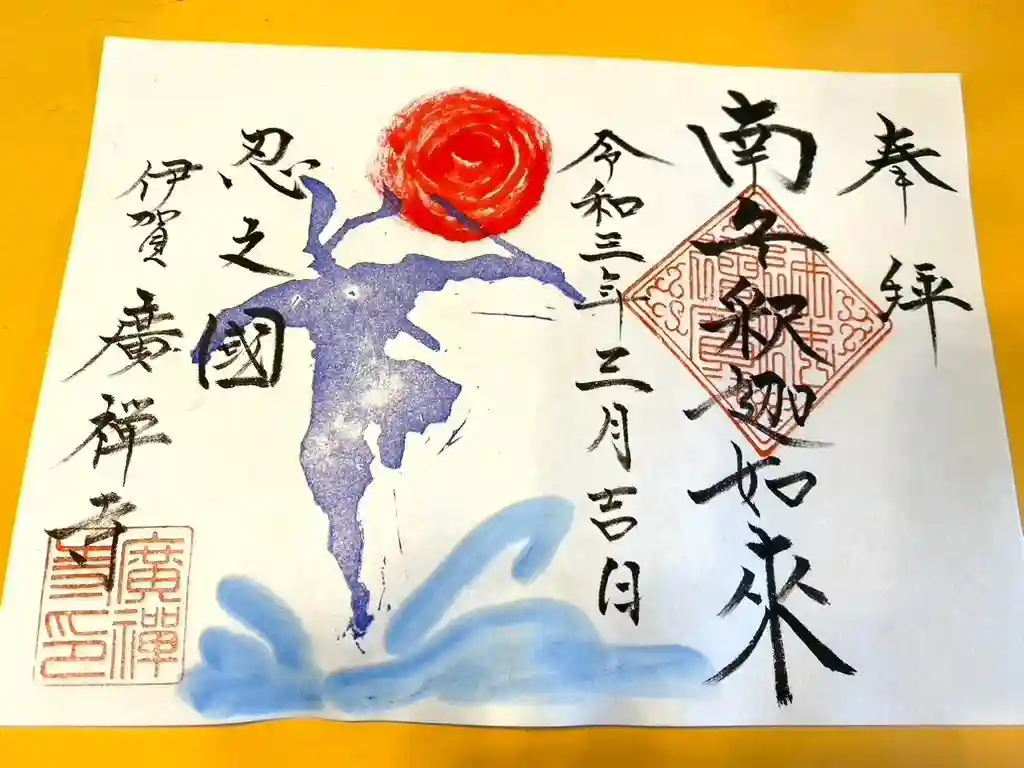 奉拝
南無釈迦如来
令和三年三月吉日
忍之國
伊賀 廣禅寺
廣禅
寺印